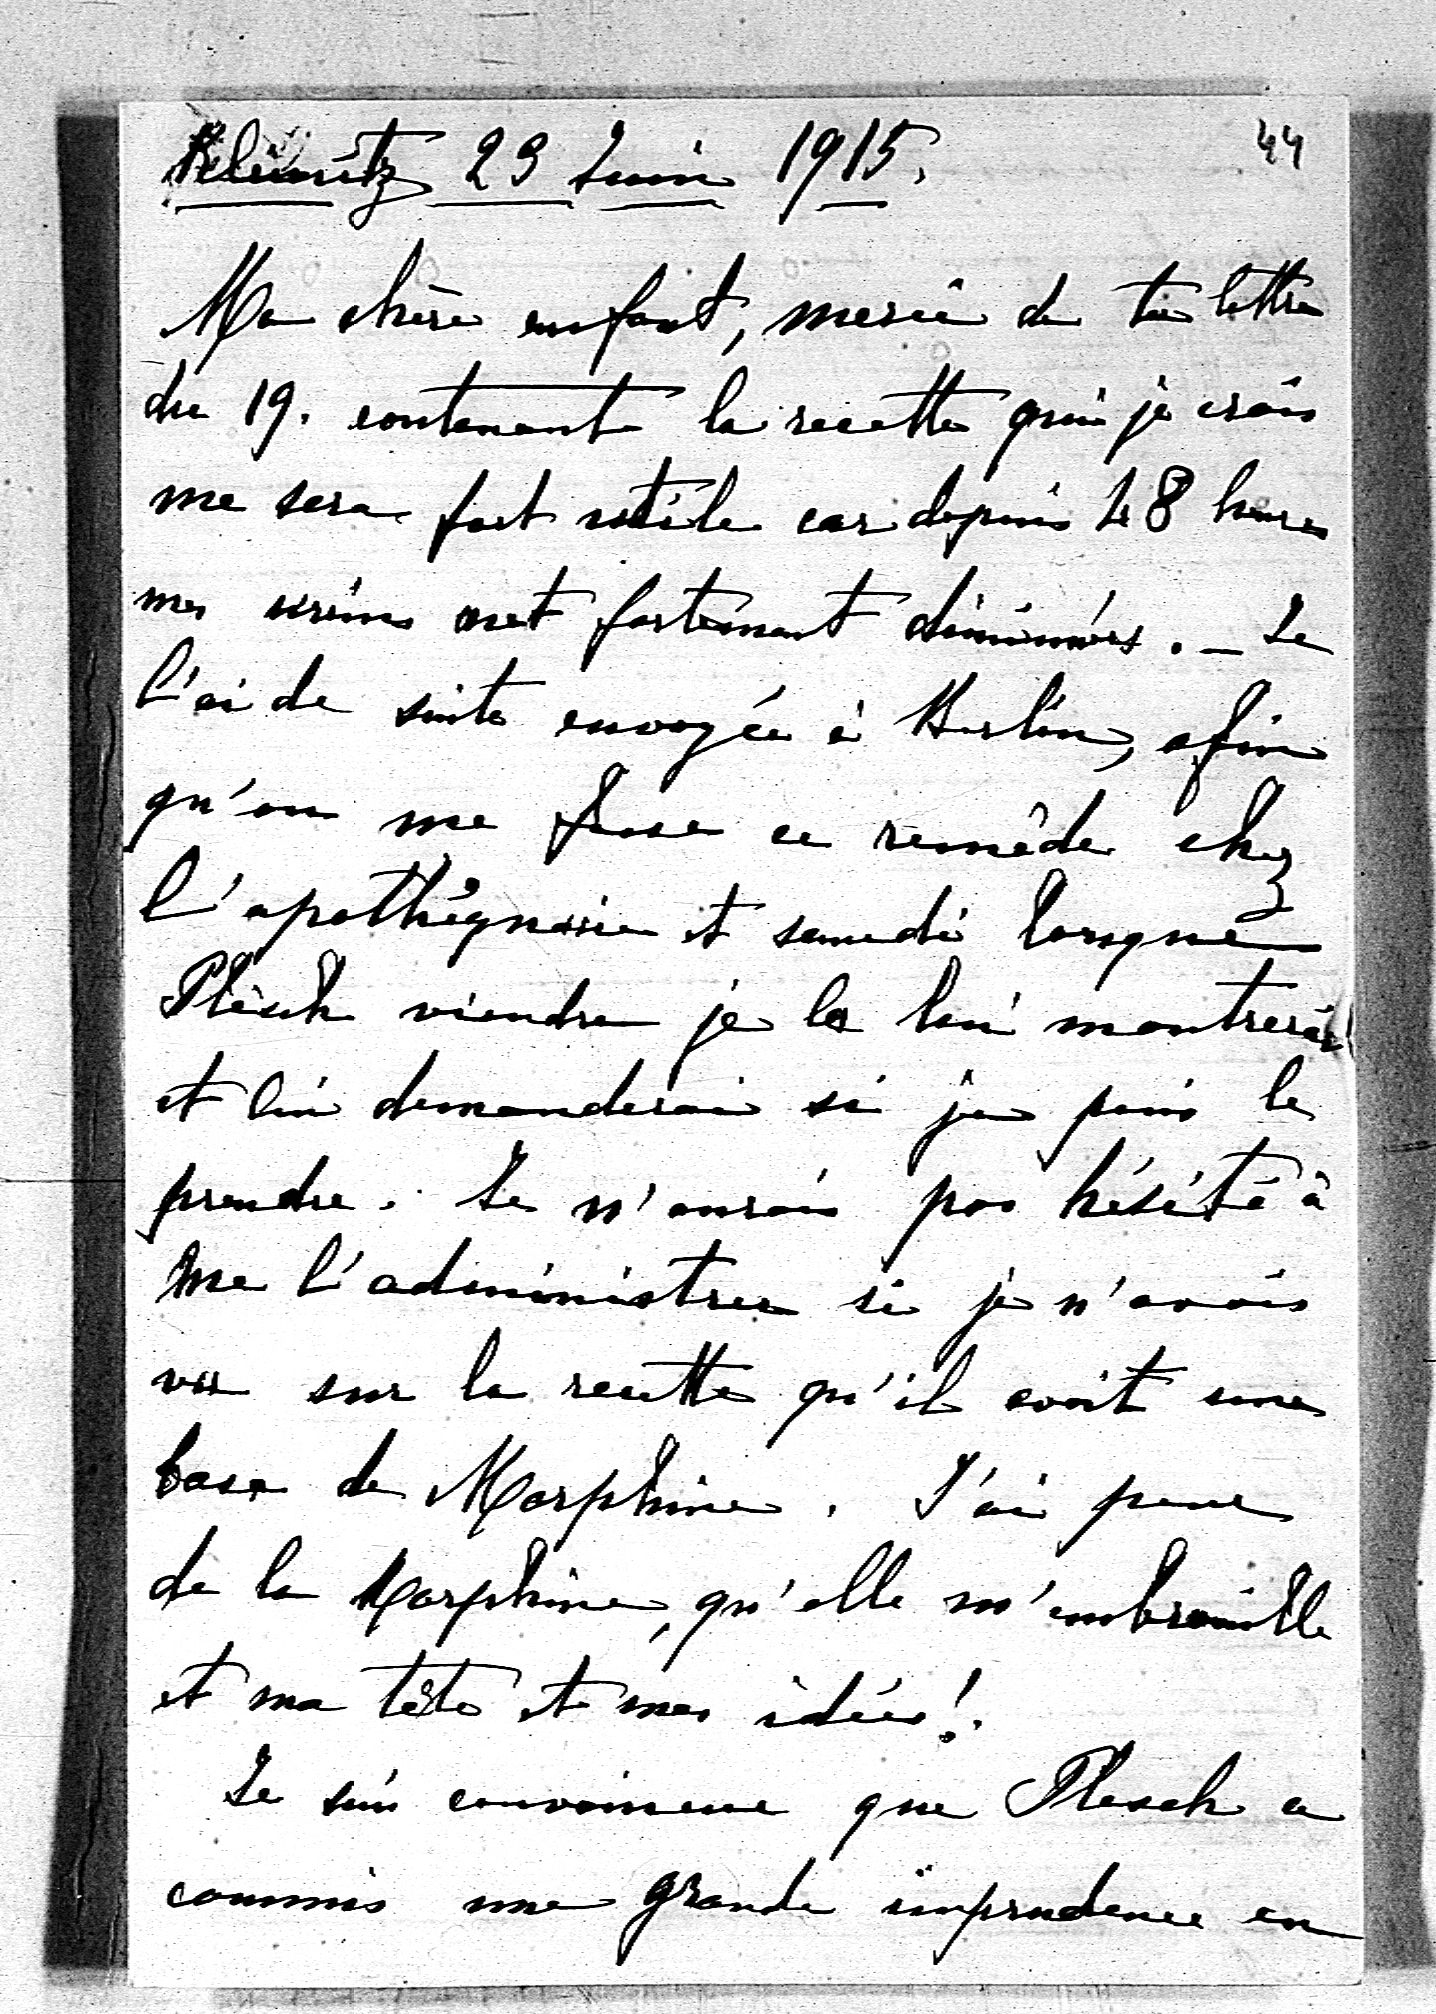 Kleinitz 23 Juin 1915.
44
Ma chère enfant, merci de ta lettre
du 19. contenant la recette qui je crois
me sera fort utile car depuis 48 heures
mes urines ont fortement diminués. _ Je
l'ai de suite envoyée à Berlin, afin
qu'on me fasse ce remède chez
l'apothéquaire et samedi lorsque
Plesch viendra je la lui montrerai
et lui demanderai si je puis le
prendre. Je n'aurais pas hésité à
me l'administrer si je n'avais
vu sur la recette qu'il avait une
base de Morphine. J'ai peur
de la Morphine, qu'elle m'embrouille
et ma tête et mes idées!
Je suis convaincue que Plesch a
commis une grande imprudence en